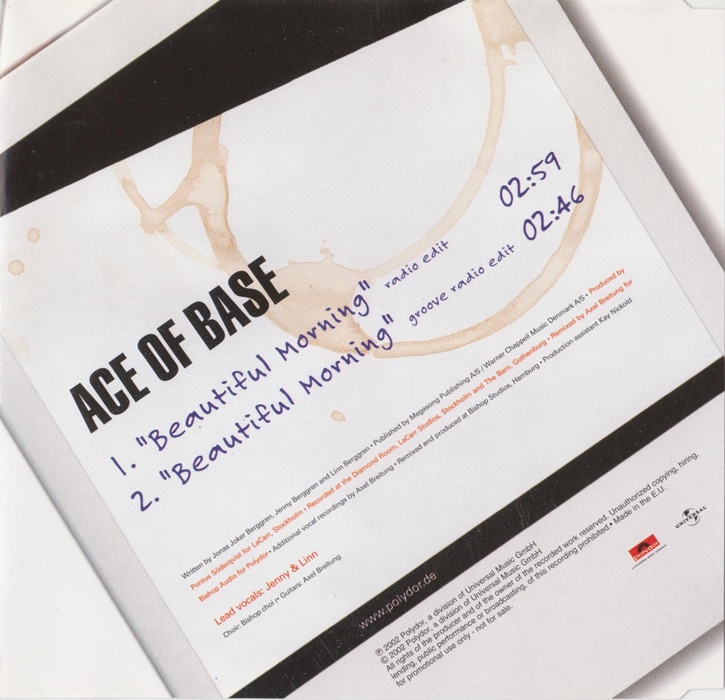 ACE OF BASE
1. "Beautiful Morning" radio edit 02:59
2. "Beautiful Morning" groove radio edit 02:46
Written by Jonas Joker Berggren, Jenny Berggren and Linn Berggren • Published by Megasong Publishing A/S / Warner Chappell Music Denmark A/S • Produced by
Pontus Söderqvist for LaCarr, Stockholm • Recorded at the Diamond Room, LaCarr Studios, Stockholm and The Barn, Gothenburg • Remixed by Axel Breitung for
Bishop Audio for Polydor • Additional vocal recordings by Axel Breitung • Remixed and produced at Bishop Studios, Hamburg • Production assistant Kay Nickold
Lead vocals: Jenny & Linn
Choir: Bishop choi r• Guitars: Axel Breitung
www.polydor.de
℗ 2002 Polydor, a division of Universal Music GmbH
© 2002 Polydor, a division of Universal Music GmbH
All rights of the producer and of the owner of the recorded work reserved. Unauthorized copying, hiring,
lending, public performance or broadcasting, of this recording prohibited.• Made in the E.U.
for promotional use only - not for sale.
Polydor
UNIVERSAL